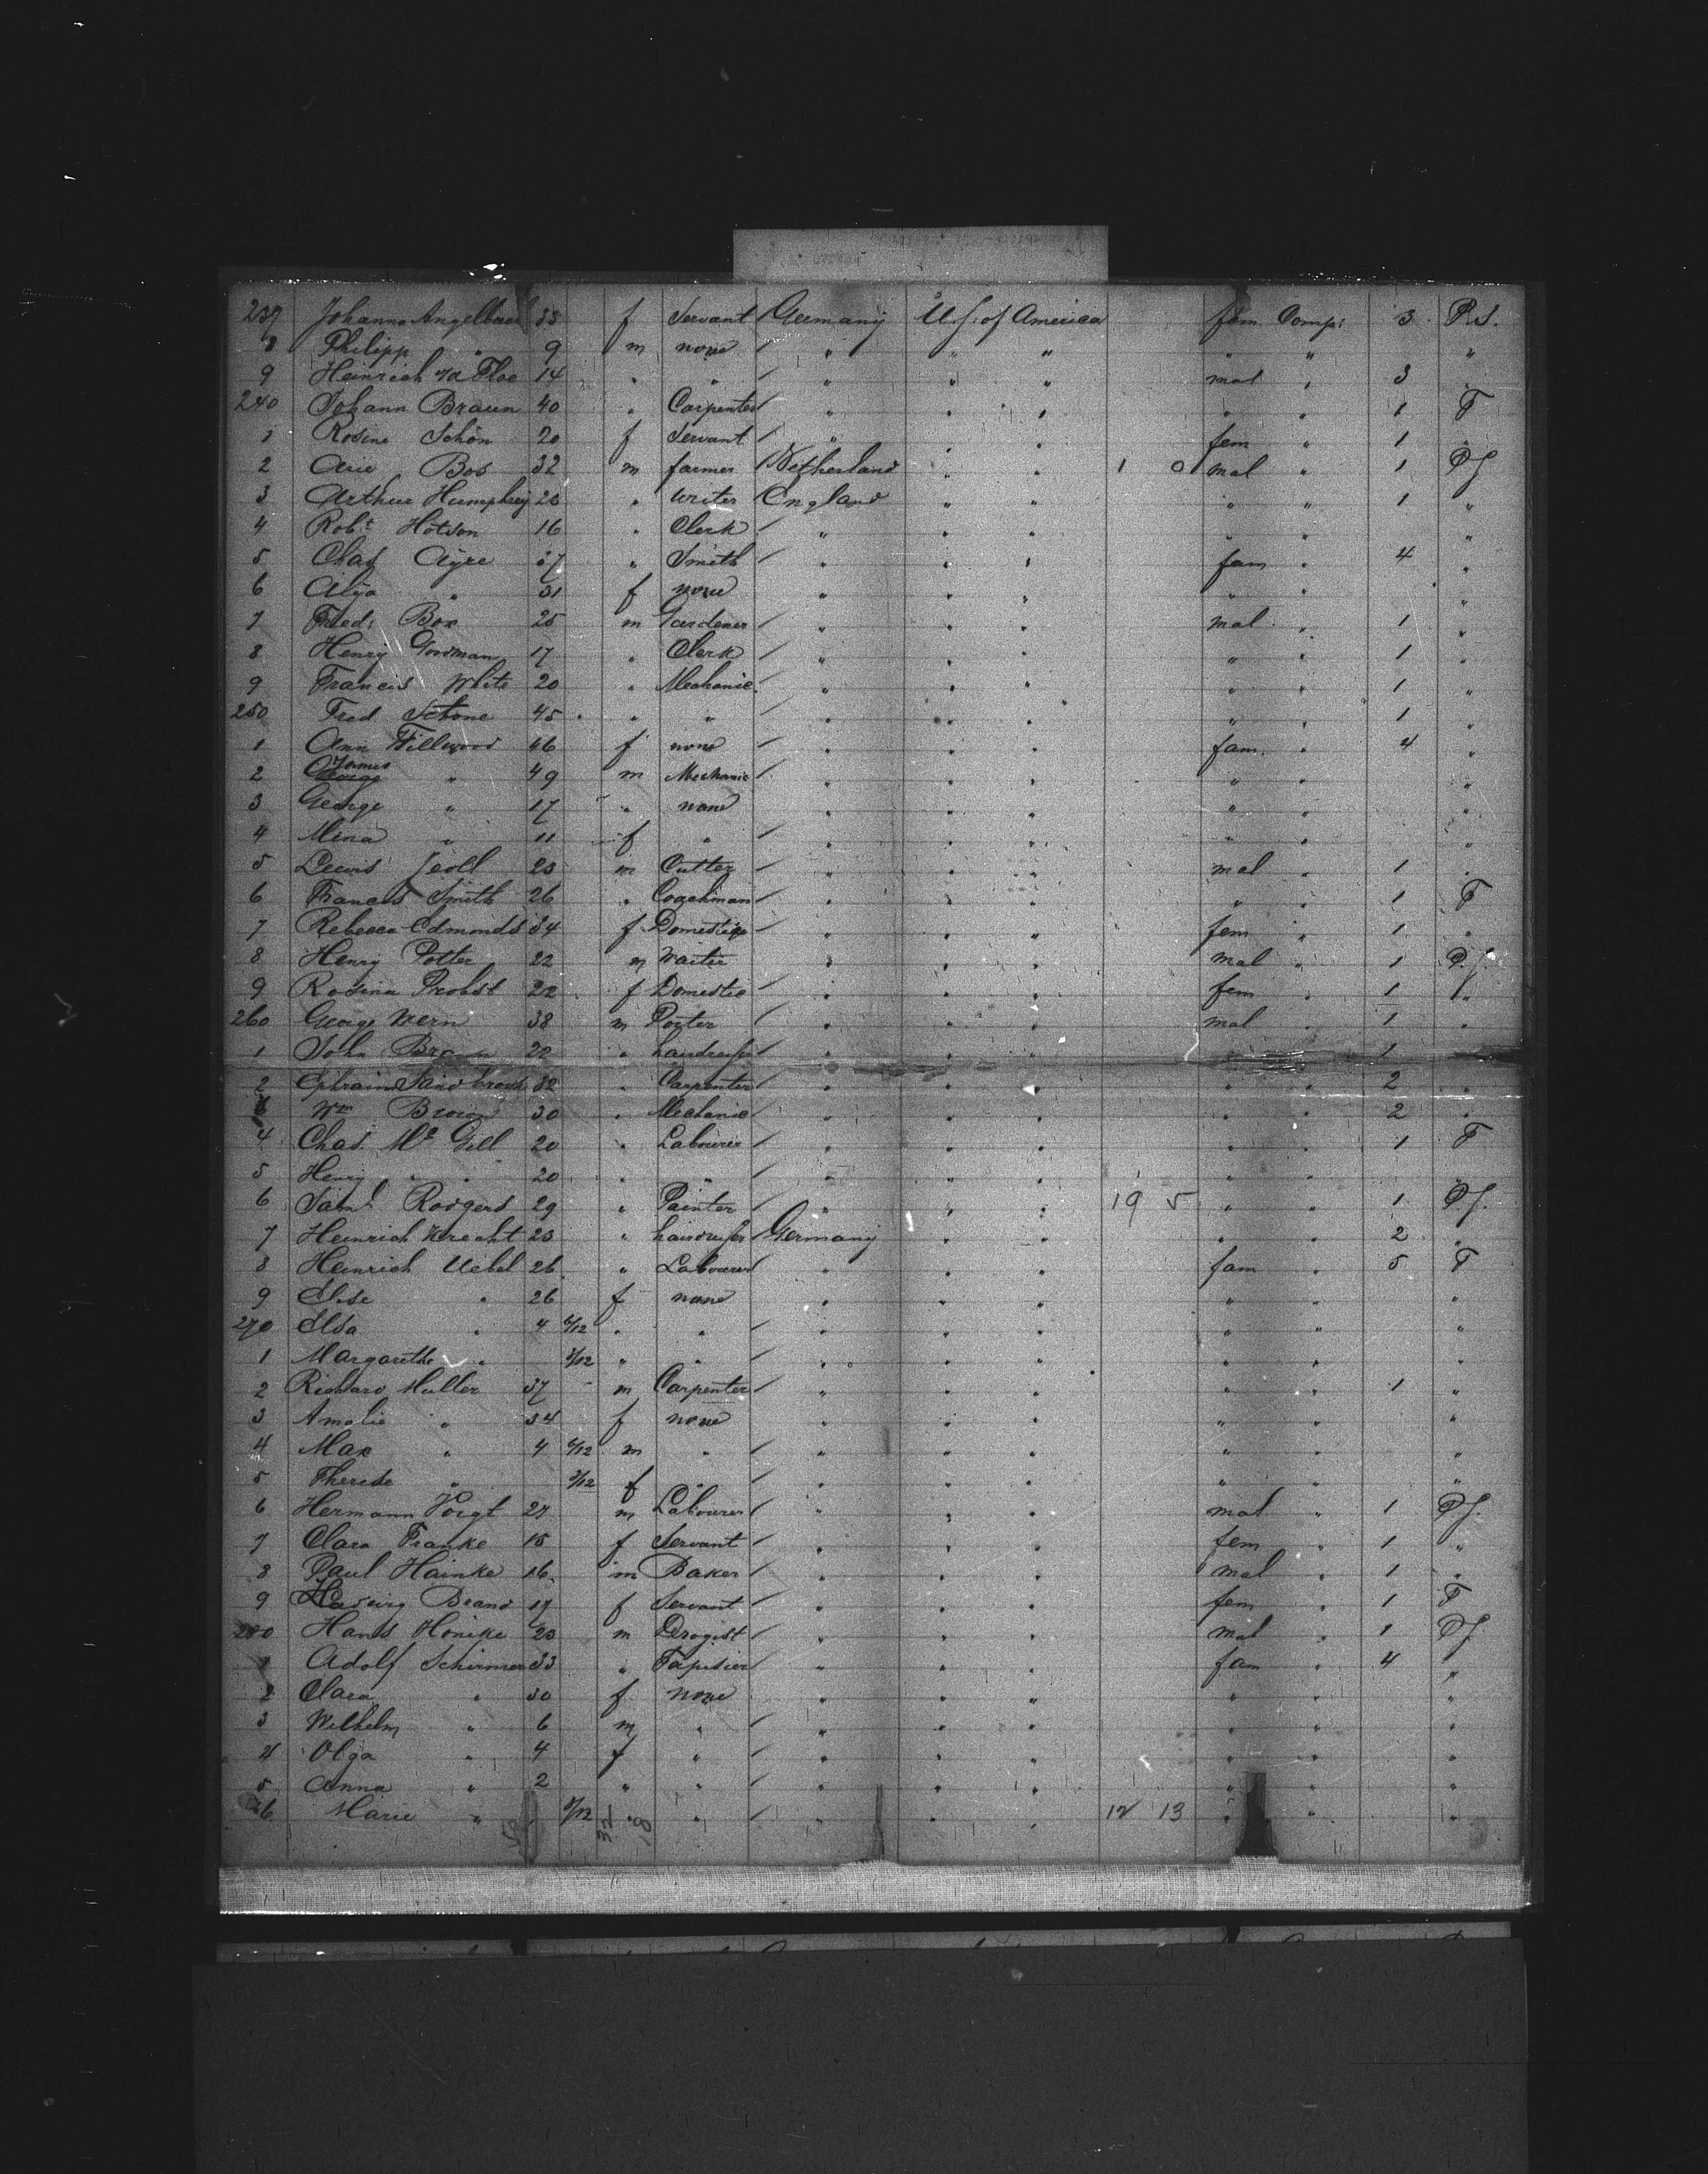 237 Johanna Angelbaer 33 f Servant Germany U.S. of America fam Comp: 3 P.S.
8 Philipp " 9 m none / " " " " " "
9 Heinrich 14 " " / " " " mal " 3 "
240 Johann Braun 40 " Carpenter / " " " " " 1 F
1 Rosine Schön 20 f Servant / " " " fem " 1 "
2 Arie Bos 32 m farmer / Netherland " " 1 0 mal " 1 PS
3 Arthur Humphrey " writer / England " " " " 1 "
4 Robt Hotson 16 " Clerk / " " " " " "
5 Chas Ayre 37 " Smith / " " " fam " 4 "
6 " 31 f none " " " " " "
7 Fred: Box 25 m Gardener / " " " mal " 1 "
8 Henry Goodman 17 " Clerk / " " " " " 1 "
9 Francis White 20 " Mechanic / " " " " " 1 "
250 Fred Stone 45 " " / " " " " " 1 "
1 Ann Fillwood 46 f none / " " " fam " 4 "
2 James " 49 m Mechanic / " " " " " "
3 George " 17 " none " " " " " "
4 Mina " 11 f " / " " " " " "
5 Lewis 23 m Cutter / " " " mal " 1 "
6 Francis Smith 26 " Coachman / " " " " " 1 F
7 Rebecca Edmonds 34 f Domestic / " " " fem " 1 "
8 Henry Potter 22 m Waiter " " " mal " 1 P.S.
9 Rosina Probst 22 f Domestic / " " " fem " 1 "
260 George Wern 38 m Porter / " " " mal " 1 "
1 John 22 " hairdresser / " " " " " 1 "
2 Ephraim 32 " Carpenter / " " " " " 2 "
3 Wm Brown 30 " Mechanic / " " " " " 2 "
4 Chas. Mc Gill 20 " Labourer / " " " " " 1 F
5 Henry " " 20 " " / " " " " " "
6 Saml. Rodgers 29 " Painter / " " " 19 5 " " 1 PS.
7 Heinrich Knecht 23 " hairdresser / Germany " " " " 2 "
8 Heinrich Uebel 26 " Labourer / " " " fam " 5 F
9 Elise " 26 f none " " " " " "
270 Elsa " 4 6/12 " " / " " " " " "
1 Margarethe " /12 " " / " " " " " "
2 Richard Muller 37 - m Carpenter / " " " " " 1 "
3 Amalie " 34 f none " " " " " "
4 Max " 4 6/12 m " / " " " " " "
5 Therese " /12 f " / " " " " " "
6 Hermann Voigt 27 m Labourer / " " " mal " 1 PS.
7 Clara Franke 18 f Servant / " " " fem " 1 "
8 Paul Hainke 16 m Baker / " " " mal " 1 "
9 Hedwig Brand 17 f Servant / " " " fem " 1 F
280 Hans Hönike 23 m Drogist / " " " mal " 1 PS
1 Adolf Schirmer 33 " Tapisier / " " " fam " 4 "
2 Clara " 30 f none " " " " " "
3 Wilhelm " 6 m " / " " " " " "
4 Olga " 4 f " / " " " " " "
5 Anna " 2 " " / " " " " " "
6 Marie " /12 " " / " " " 12 13 " " "
32 18